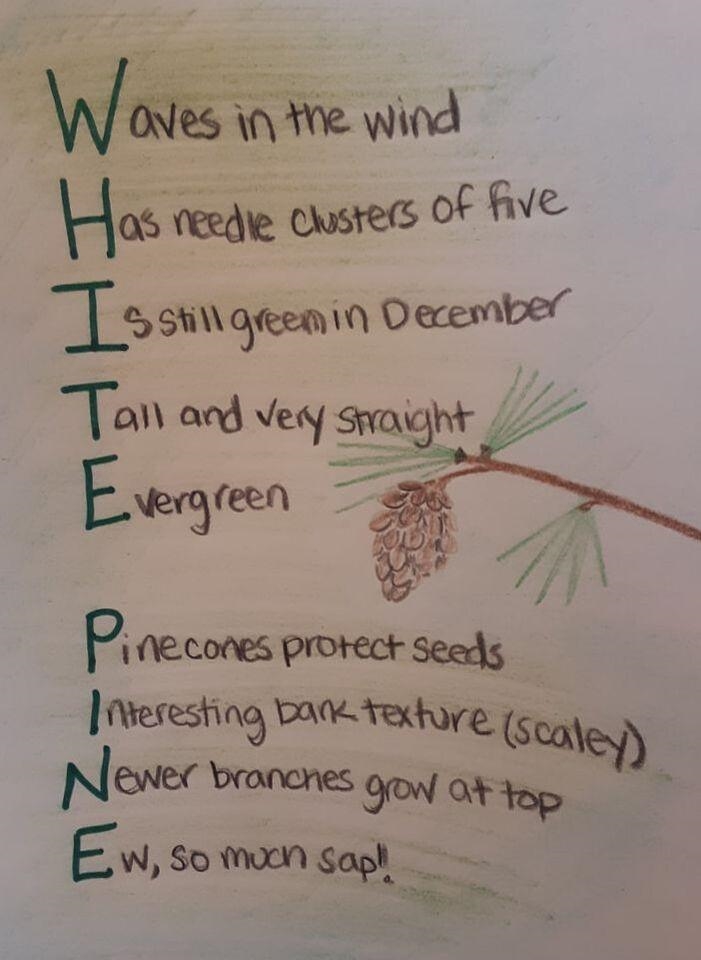 Waves in the wind
Has needle clusters of five
Is still green in December
Tall and very straight
Evergreen
Pinecones protect seeds
Interesting bark texture (scaley)
Newer branches grow at top
Ew, so much sap!!